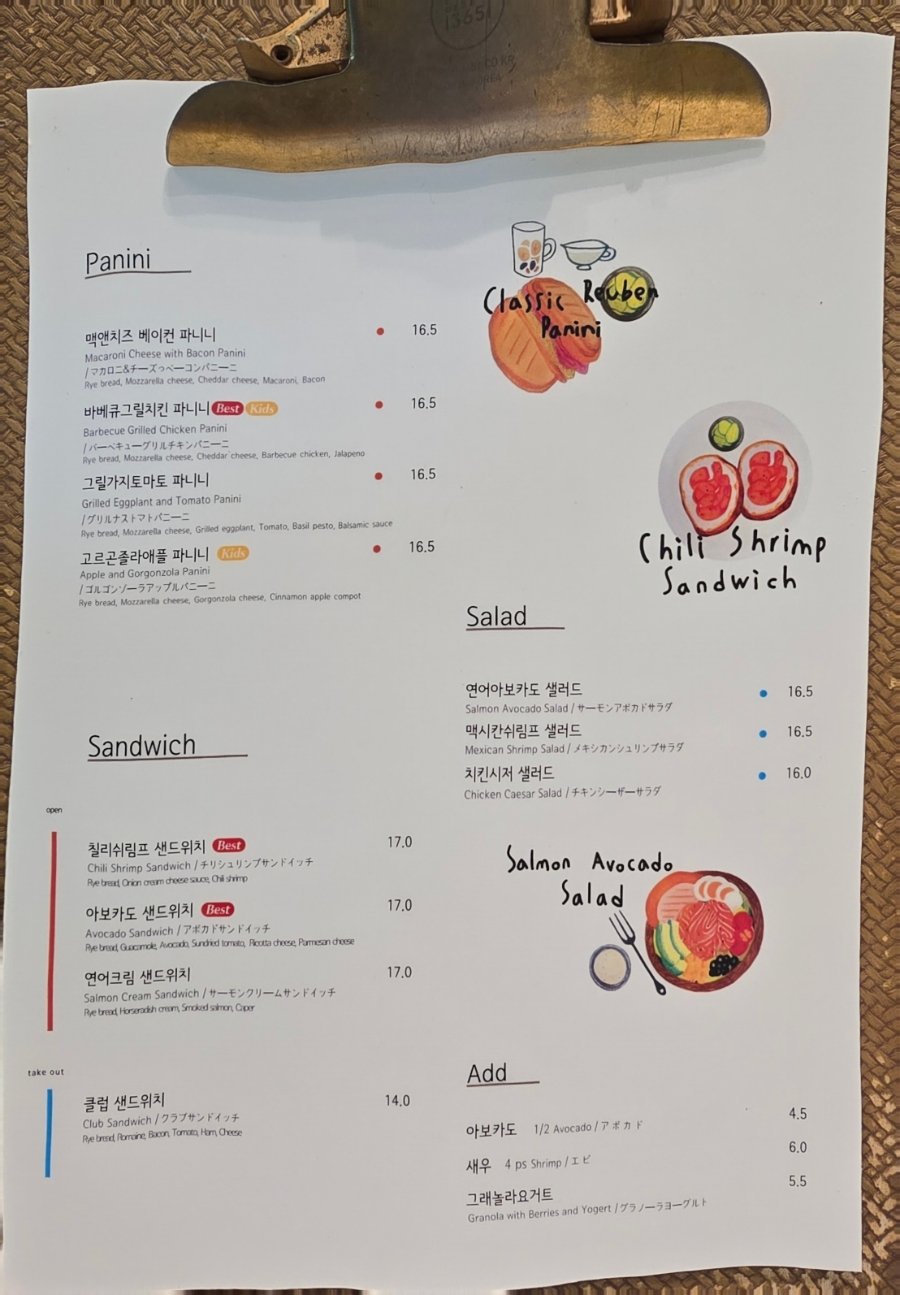 1365
Panini
맥앤치즈 베이컨 파니니 16.5
Macaroni Cheese with Bacon Panini
/マカロニ&チーズっベーコンパニーニ
Rye bread, Mozzarella cheese, Cheddar cheese, Macaroni, Bacon
바베큐그릴치킨 파니니 Best Kids 16.5
Barbecue Grilled Chicken Panini
/バーベキューグリルチキンパニーニ
Rye bread, Mozzarella cheese, Cheddar cheese, Barbecue chicken, Jalapeno
그릴가지토마토 파니니 16.5
Grilled Eggplant and Tomato Panini
/グリルナストマトパニーニ
Rye bread, Mozzarella cheese, Grilled eggplant, Tomato, Basil pesto, Balsamic sauce
고르곤졸라애플 파니니 Kids 16.5
Apple and Gorgonzola Panini
/ゴルゴンゾーラアップルパニーニ
Rye bread, Mozzarella cheese, Gorgonzola cheese, Cinnamon apple compot
Classic Reuben
Panini
Chili Shrimp
Sandwich
Sandwich
open
칠리쉬림프 샌드위치 Best 17.0
Chili Shrimp Sandwich / チリシュリンプサンドイッチ
Rye bread, Onion cream cheese sauce, Chili shrimp
아보카도 샌드위치 Best 17.0
Avocado Sandwich / アボカドサンドイッチ
Rye bread, Guacamole, Avocado, Sundried tomato, Ricotta cheese, Parmesan cheese
연어크림 샌드위치 17.0
Salmon Cream Sandwich / サーモンクリームサンドイッチ
Rye bread, Horseradish cream, Smoked salmon, Caper
take out
클럽 샌드위치 14.0
Club Sandwich / クラブサンドイッチ
Rye bread, Romaine, Bacon, Tomato, Ham, Cheese
Salad
연어아보카도 샐러드 16.5
Salmon Avocado Salad / サーモンアボカドサラダ
맥시칸쉬림프 샐러드 16.5
Mexican Shrimp Salad / メキシカンシュリンプサラダ
치킨시저 샐러드 16.0
Chicken Caesar Salad / チキンシーザーサラダ
Salmon Avocado
Salad
Add
아보카도 1/2 Avocado / アボカド 4.5
새우 4 ps Shrimp / エビ 6.0
그래놀라요거트 5.5
Granola with Berries and Yogert / グラノーラヨーグルト